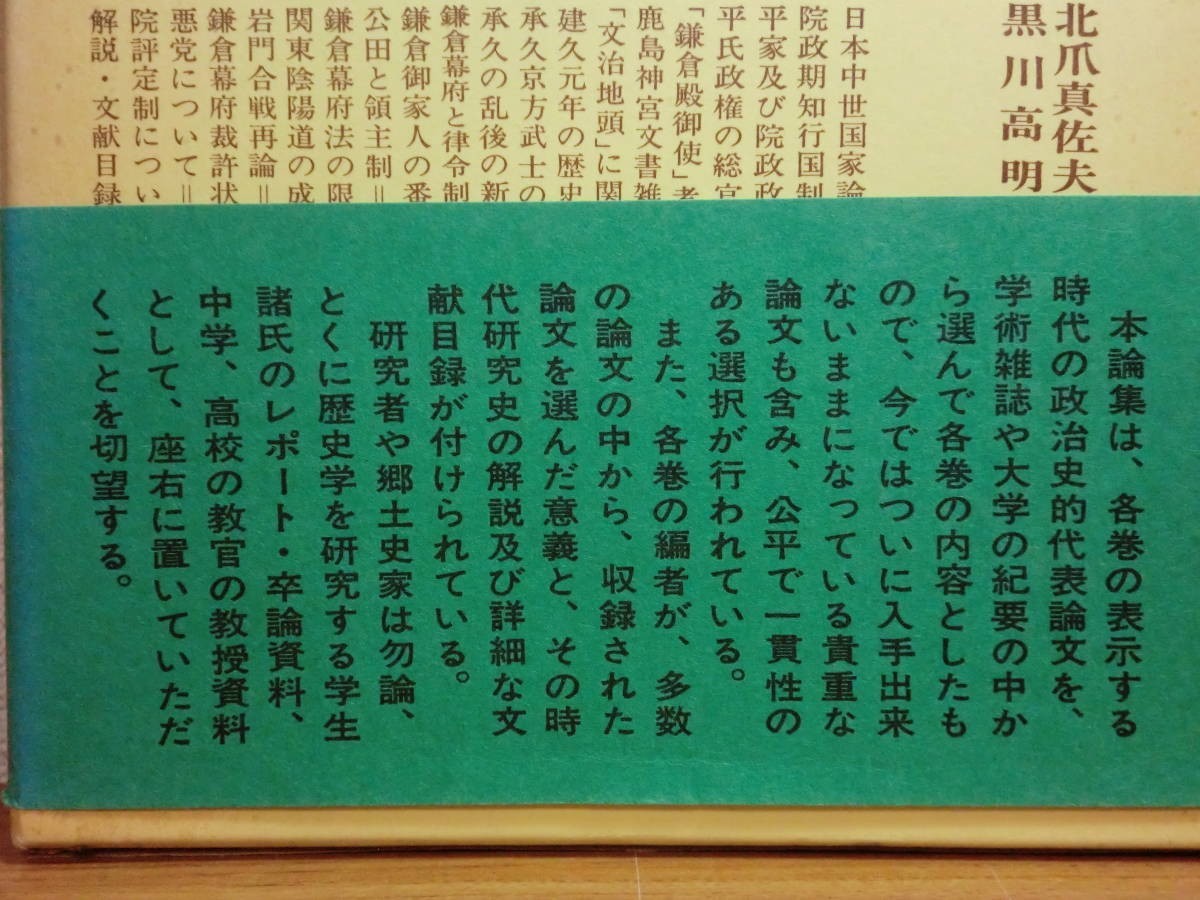 北爪真佐夫
黒川高明
日本中世国家論
院政期知行国制
平家及び院政政
平氏政権の総官
「鎌倉殿御使」考
鹿島神宮文書雑
「文治地頭」に関
建久元年の歴史
承久京方武士の
承久の乱後の新
鎌倉幕府と律令制
鎌倉御家人の番
公田と領主制＝
鎌倉幕府法の限
関東陰陽道の成
岩門合戦再論＝
鎌倉幕府裁許状
悪党について＝
院評定制につい
解説・文献目録
本論集は、各巻の表示する
時代の政治史的代表論文を、
学術雑誌や大学の紀要の中か
ら選んで各巻の内容としたも
ので、今ではついに入手出来
ないままになっている貴重な
論文も含み、公平で一貫性の
ある選択が行われている。
また、各巻の編者が、多数
の論文の中から、収録された
論文を選んだ意義と、その時
代研究史の解説及び詳細な文
献目録が付けられている。
研究者や郷土史家は勿論、
とくに歴史学を研究する学生
諸氏のレポート・卒論資料、
中学、高校の教官の教授資料
として、座右に置いていただ
くことを切望する。